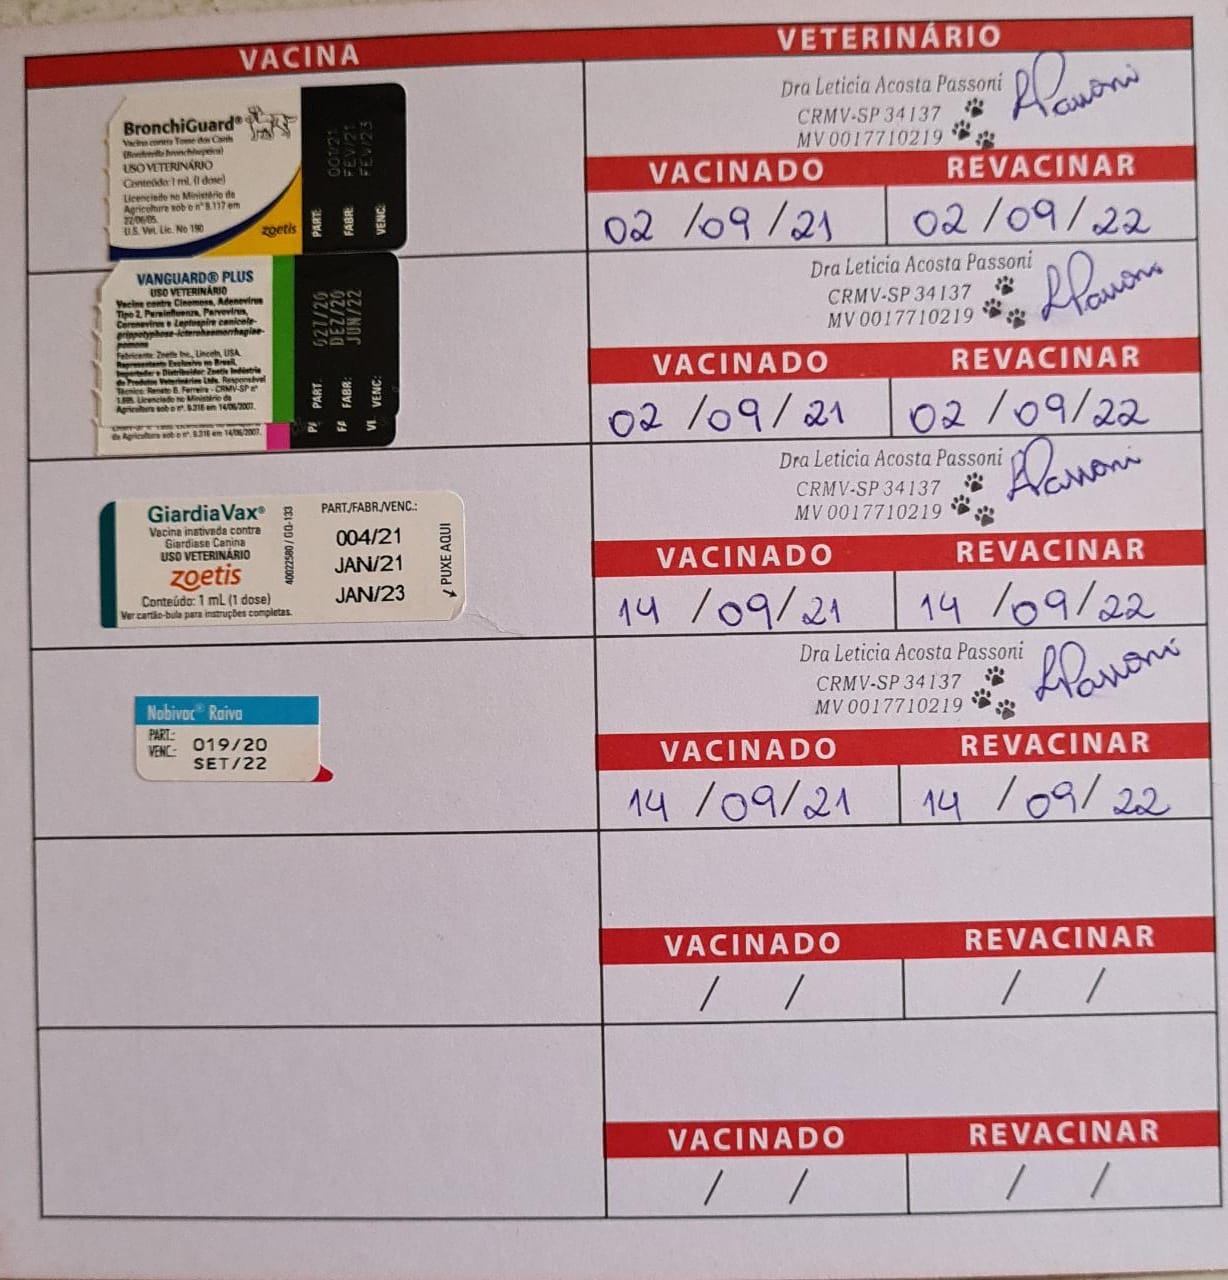 VACINA
VETERINÁRIO
BronchiGuard®
Vacina contra Tosse dos Canis
(Bordetella bronchiseptica)
USO VETERINÁRIO
Conteúdo: 1 mL (1 dose)
Licenciado no Ministério da
Agricultura sob o nº 9.117 em
22/06/05.
U.S. Vet. Lic. No 190
zoetis
PART: 001/21
FABR: FEV/21
VENC: FEV/23
Dra Leticia Acosta Passoni
CRMV-SP 34137
MV 0017710219
LPassoni
VACINADO
REVACINAR
02 /09/21
02 /09/22
VANGUARD® PLUS
USO VETERINÁRIO
Vacina contra Cinomose, Adenovirus
Tipo 2, Parainfluenza, Parvovirus,
Coronavirus e Leptospira canicola-
grippotyphosa-icterohaemorrhagiae-
pomona
Fabricante: Zoetis Inc., Lincoln, USA.
Representante Exclusivo no Brasil,
Importador e Distribuidor: Zoetis Indústria
de Produtos Veterinários Ltda. Responsável
Técnico: Renato B. Ferreira - CRMV-SP nº
Licenciado no Ministério da
Agricultura sob o nº. 9.316 em 14/06/2007.
da Agricultura sob o nº. 9.316 em 14/06/2007.
PART. 027/20
FABR: DEZ/20
VENC: JUN/22
Dra Leticia Acosta Passoni
CRMV-SP 34137
MV 0017710219
LPassoni
VACINADO
REVACINAR
02 /09/21
02 /09/22
GiardiaVax®
Vacina inativada contra
Giardiase Canina
USO VETERINÁRIO
zoetis
Conteúdo: 1 mL (1 dose)
Ver cartão-bula para instruções completas.
40022580 / GQ-133
PART./FABR./VENC.:
004/21
JAN/21
JAN/23
PUXE AQUI
Dra Leticia Acosta Passoni
CRMV-SP 34137
MV 0017710219
LPassoni
VACINADO
REVACINAR
14 /09/21
14 /09/22
Nobivac® Raiva
PART.: 019/20
VENC.: SET/22
Dra Leticia Acosta Passoni
CRMV-SP 34137
MV 0017710219
LPassoni
VACINADO
REVACINAR
14 /09/21
14 /09/22
VACINADO
REVACINAR
/ /
/ /
VACINADO
REVACINAR
/ /
/ /